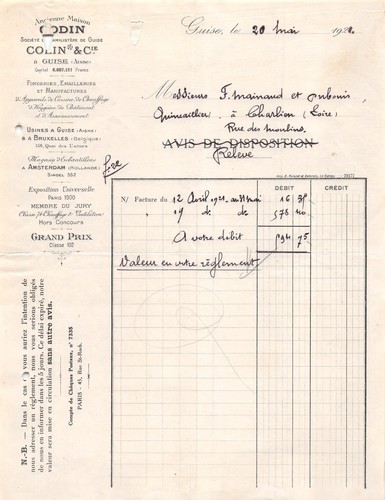 Ancienne Maison
GODIN
Société du Familistère de Guise
COLIN & Cie
à GUISE (Aisne)
Capital
FONDERIES, EMAILLERIES
ET MANUFACTURES
d'Appareils de Cuisine, de Chauffage
d'Hygiène, de Bâtiment
et d'Assainissement
USINES A GUISE (AISNE)
& A BRUXELLES (Belgique)
158, Quai des Usines
Magasin d'échantillons
A AMSTERDAM (HOLLANDE)
SINGEL 552
Exposition Universelle
PARIS 1900
MEMBRE DU JURY
Classe 74 (Chauffage & Ventilation)
HORS CONCOURS
GRAND PRIX
Classe 102
Guise, le 20 Mai 192
Messieurs F. Mainaud et
Quincailliers, à Charlieu (Loire)
Rue des Moulins.
AVIS DE DISPOSITION
Relevé
DÉBIT CRÉDIT
N/ Facture du 12 Avril 1921 16
19 do do 578
A votre débit 594 75
Valeur en votre règlement
N.-B. — Dans le cas où vous auriez l'intention de
nous adresser un règlement, nous vous serions obligés
de nous en informer dans les 5 jours. Ce délai expiré, notre
valeur sera mise en circulation sans autre avis.
Compte de Chèques Postaux, n° 7335
PARIS - 43, Rue St-Roch.